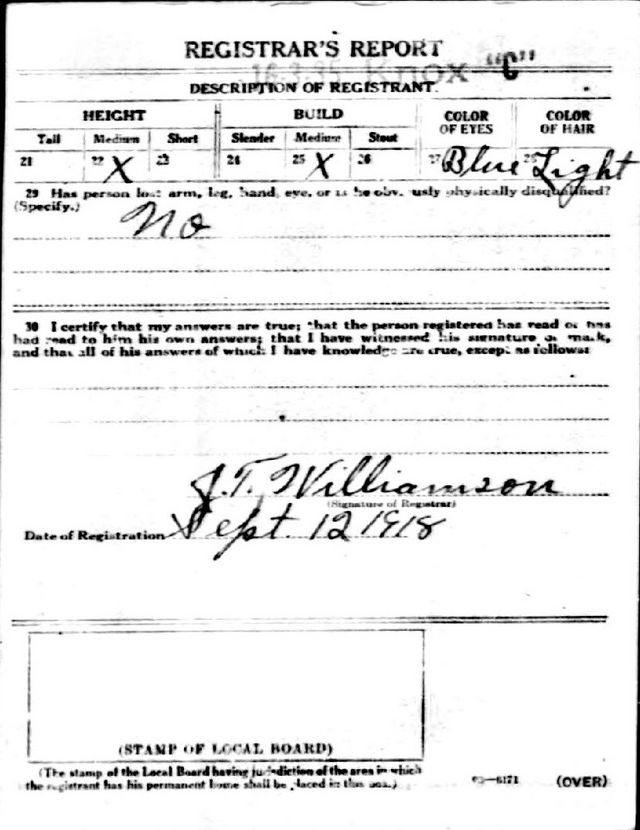 REGISTRAR'S REPORT
16-3-35 Knox "C"
DESCRIPTION OF REGISTRANT.
HEIGHT BUILD COLOR OF EYES COLOR OF HAIR
Tall Medium Short Slender Medium Stout
21 22 X 23 24 25 X 26 27 Blue 28 Light
29 Has person lost arm, leg, hand, eye, or is he obviously physically disqualified?
(Specify.)
No
30 I certify that my answers are true; that the person registered has read or has
had read to him his own answers; that I have witnessed his signature or mark,
and that all of his answers of which I have knowledge are true, except as follows:
J.T. Williamson
(Signature of Registrar)
Date of Registration Sept. 12 1918
(STAMP OF LOCAL BOARD)
(The stamp of the Local Board having jurisdiction of the area in which
the registrant has his permanent home shall be placed in this box.)
03—6171 (OVER)